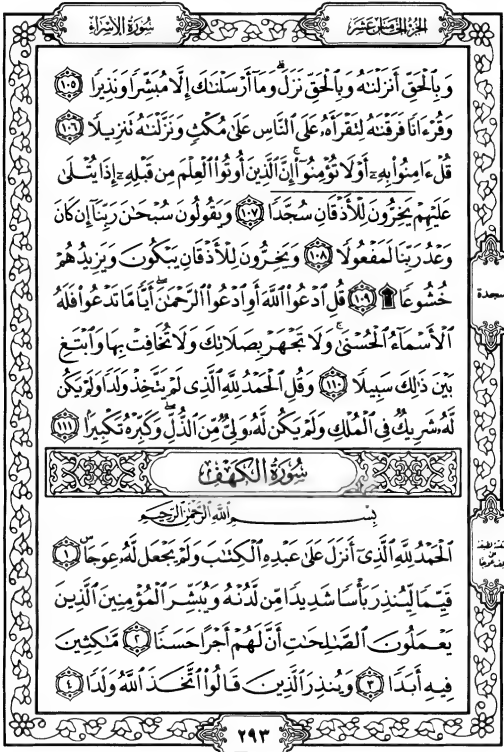 الجزء الخامس عشر
سورة الإسراء
وَبِٱلْحَقِّ أَنزَلْنَٰهُ وَبِٱلْحَقِّ نَزَلَ ۗ وَمَآ أَرْسَلْنَٰكَ إِلَّا مُبَشِّرًا وَنَذِيرًا ١٠٥
وَقُرْءَانًا فَرَقْنَٰهُ لِتَقْرَأَهُۥ عَلَى ٱلنَّاسِ عَلَىٰ مُكْثٍ وَنَزَّلْنَٰهُ تَنزِيلًا ١٠٦
قُلْ ءَامِنُوا۟ بِهِۦٓ أَوْ لَا تُؤْمِنُوٓا۟ ۚ إِنَّ ٱلَّذِينَ أُوتُوا۟ ٱلْعِلْمَ مِن قَبْلِهِۦٓ إِذَا يُتْلَىٰ
عَلَيْهِمْ يَخِرُّونَ لِلْأَذْقَانِ سُجَّدًا ١٠٧ وَيَقُولُونَ سُبْحَٰنَ رَبِّنَآ إِن كَانَ
وَعْدُ رَبِّنَا لَمَفْعُولًا ١٠٨ وَيَخِرُّونَ لِلْأَذْقَانِ يَبْكُونَ وَيَزِيدُهُمْ
خُشُوعًا ۩ ١٠٩ قُلِ ٱدْعُوا۟ ٱللَّهَ أَوِ ٱدْعُوا۟ ٱلرَّحْمَٰنَ ۖ أَيًّا مَّا تَدْعُوا۟ فَلَهُ
ٱلْأَسْمَآءُ ٱلْحُسْنَىٰ ۚ وَلَا تَجْهَرْ بِصَلَاتِكَ وَلَا تُخَافِتْ بِهَا وَٱبْتَغِ
بَيْنَ ذَٰلِكَ سَبِيلًا ١١٠ وَقُلِ ٱلْحَمْدُ لِلَّهِ ٱلَّذِى لَمْ يَتَّخِذْ وَلَدًا وَلَمْ يَكُن
لَّهُۥ شَرِيكٌ فِى ٱلْمُلْكِ وَلَمْ يَكُن لَّهُۥ وَلِىٌّ مِّنَ ٱلذُّلِّ ۖ وَكَبِّرْهُ تَكْبِيرًۢا ١١١
سورة الكهف
بِسْمِ ٱللَّهِ ٱلرَّحْمَٰنِ ٱلرَّحِيمِ
ٱلْحَمْدُ لِلَّهِ ٱلَّذِىٓ أَنزَلَ عَلَىٰ عَبْدِهِ ٱلْكِتَٰبَ وَلَمْ يَجْعَل لَّهُۥ عِوَجَا ۜ ١
قَيِّمًا لِّيُنذِرَ بَأْسًا شَدِيدًا مِّن لَّدُنْهُ وَيُبَشِّرَ ٱلْمُؤْمِنِينَ ٱلَّذِينَ
يَعْمَلُونَ ٱلصَّٰلِحَٰتِ أَنَّ لَهُمْ أَجْرًا حَسَنًا ٢ مَّٰكِثِينَ
فِيهِ أَبَدًا ٣ وَيُنذِرَ ٱلَّذِينَ قَالُوا۟ ٱتَّخَذَ ٱللَّهُ وَلَدًا ٤
٢٩٣
سجدة